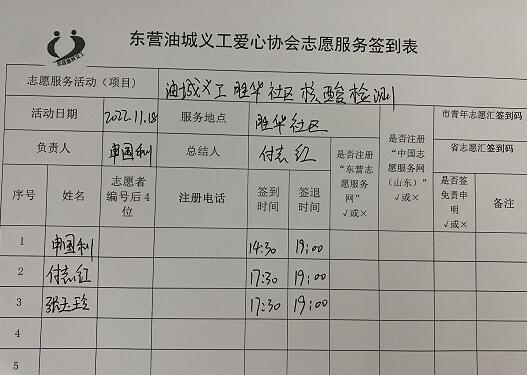 东营油城义工爱心协会志愿服务签到表
志愿服务活动（项目） 油城义工 胜华社区 核酸检测
活动日期 2022.11.18 服务地点 胜华社区 市青年志愿汇签到码
负责人 申国利 总结人 付志红 是否注册“东营志愿服务网”√或× 是否注册“中国志愿服务网（山东）”√或× 省志愿汇签到码
序号 姓名 志愿者编号后4位 注册电话 签到时间 签退时间 是否签免责申明√或× 备注
1 申国利 14:30 19:00
2 付志红 17:30 19:00
3 张玉玲 17:30 19:00
4
5